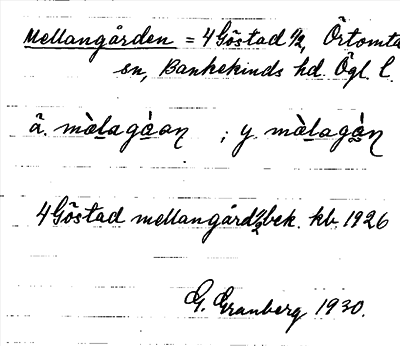 Mellangården = 4 Göstad ½, Örtomta
sn, Bankekinds hd. Ögl. l.
ä. màlagàan ; y. màlagàn
4 Göstad mellangård ½ bek. kb 1926
G. Granberg 1930.